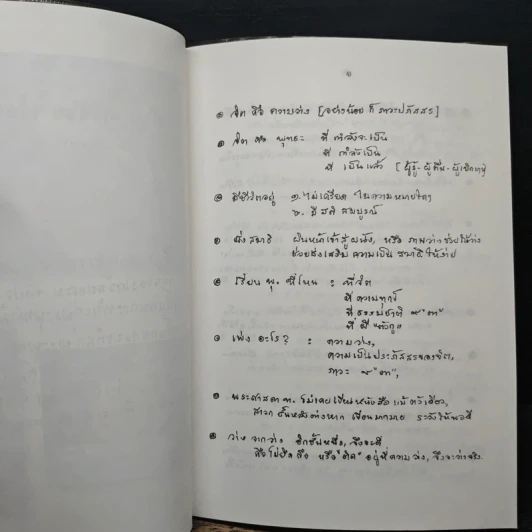 จิต คือ ความว่าง [อย่างน้อย ก็ ภาวะปภัสสร]
จิต คือ พุทธะ ที่ กำลังจะเป็น
ที่ กำลังเป็น
ที่ เป็นแล้ว [ผู้รู้ - ผู้ตื่น - ผู้เบิกบาน]
มีชีวิตอยู่ ๑. ไม่เครียด ในความหมายใดๆ
๒. มีสติ สมบูรณ์
นั่งสมาธิ หันหน้าเข้าสู่ผนัง, หรือ ภาพว่างช่วยให้ว่าง
ช่วยส่งเสริม ความเป็น สมาธิ ได้ง่าย
เรียน พุ. ที่ไหน : ที่จิต
ที่ ความทุกข์
ที่ ธรรมชาติ
ที่ "ตัวกู"
เพ่ง อะไร? : ความว่าง,
ความเป็นประภัสสรของจิต,
ภาวะ
พระศาสดา ท. ไม่เคยเขียนหนังสือ แม้ตัวเดียว,
สาวก ชั้นหลังต่างหาก เขียนมากมาย ระวังให้พอดี
ว่าง จากว่าง อีกชั้นหนึ่ง,
คือไม่ยึดถือ หรือ "ติด" อยู่ที่ความว่าง, จึงจะว่างจริง.